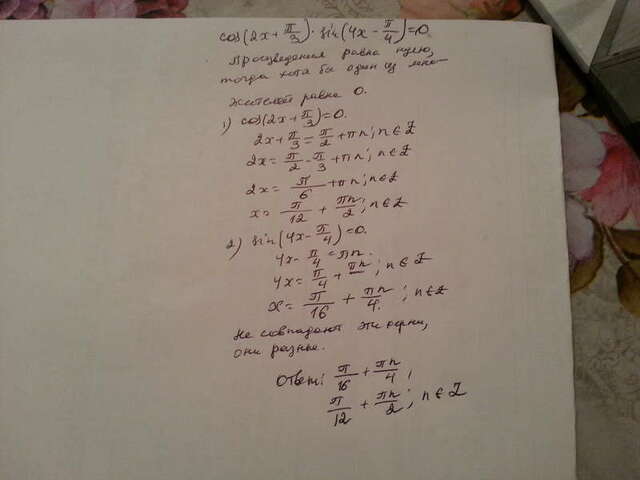 cos(2x + π/3) · sin(4x - π/4) = 0.
Произведения равна нулю,
тогда хотя бы один из мно-
жителей равна 0.
1) cos(2x + π/3) = 0.
2x + π/3 = π/2 + πn; n ∈ Z
2x = π/2 - π/3 + πn; n ∈ Z
2x = π/6 + πn; n ∈ Z
x = π/12 + πn/2; n ∈ Z
2) sin(4x - π/4) = 0.
4x - π/4 = πn.
4x = π/4 + πn; n ∈ Z
x = π/16 + πn/4; n ∈ Z
Не совпадают эти корни,
они разные.
Ответ: π/16 + πn/4;
π/12 + πn/2; n ∈ Z